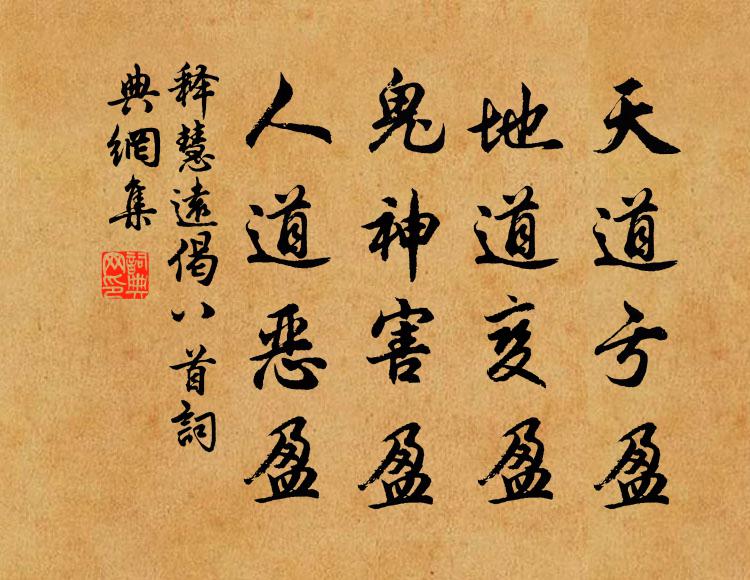 天道亏盈
地道变盈
鬼神害盈
人道恶盈
释慧遠偈八首詞
典網集
詞典
网印